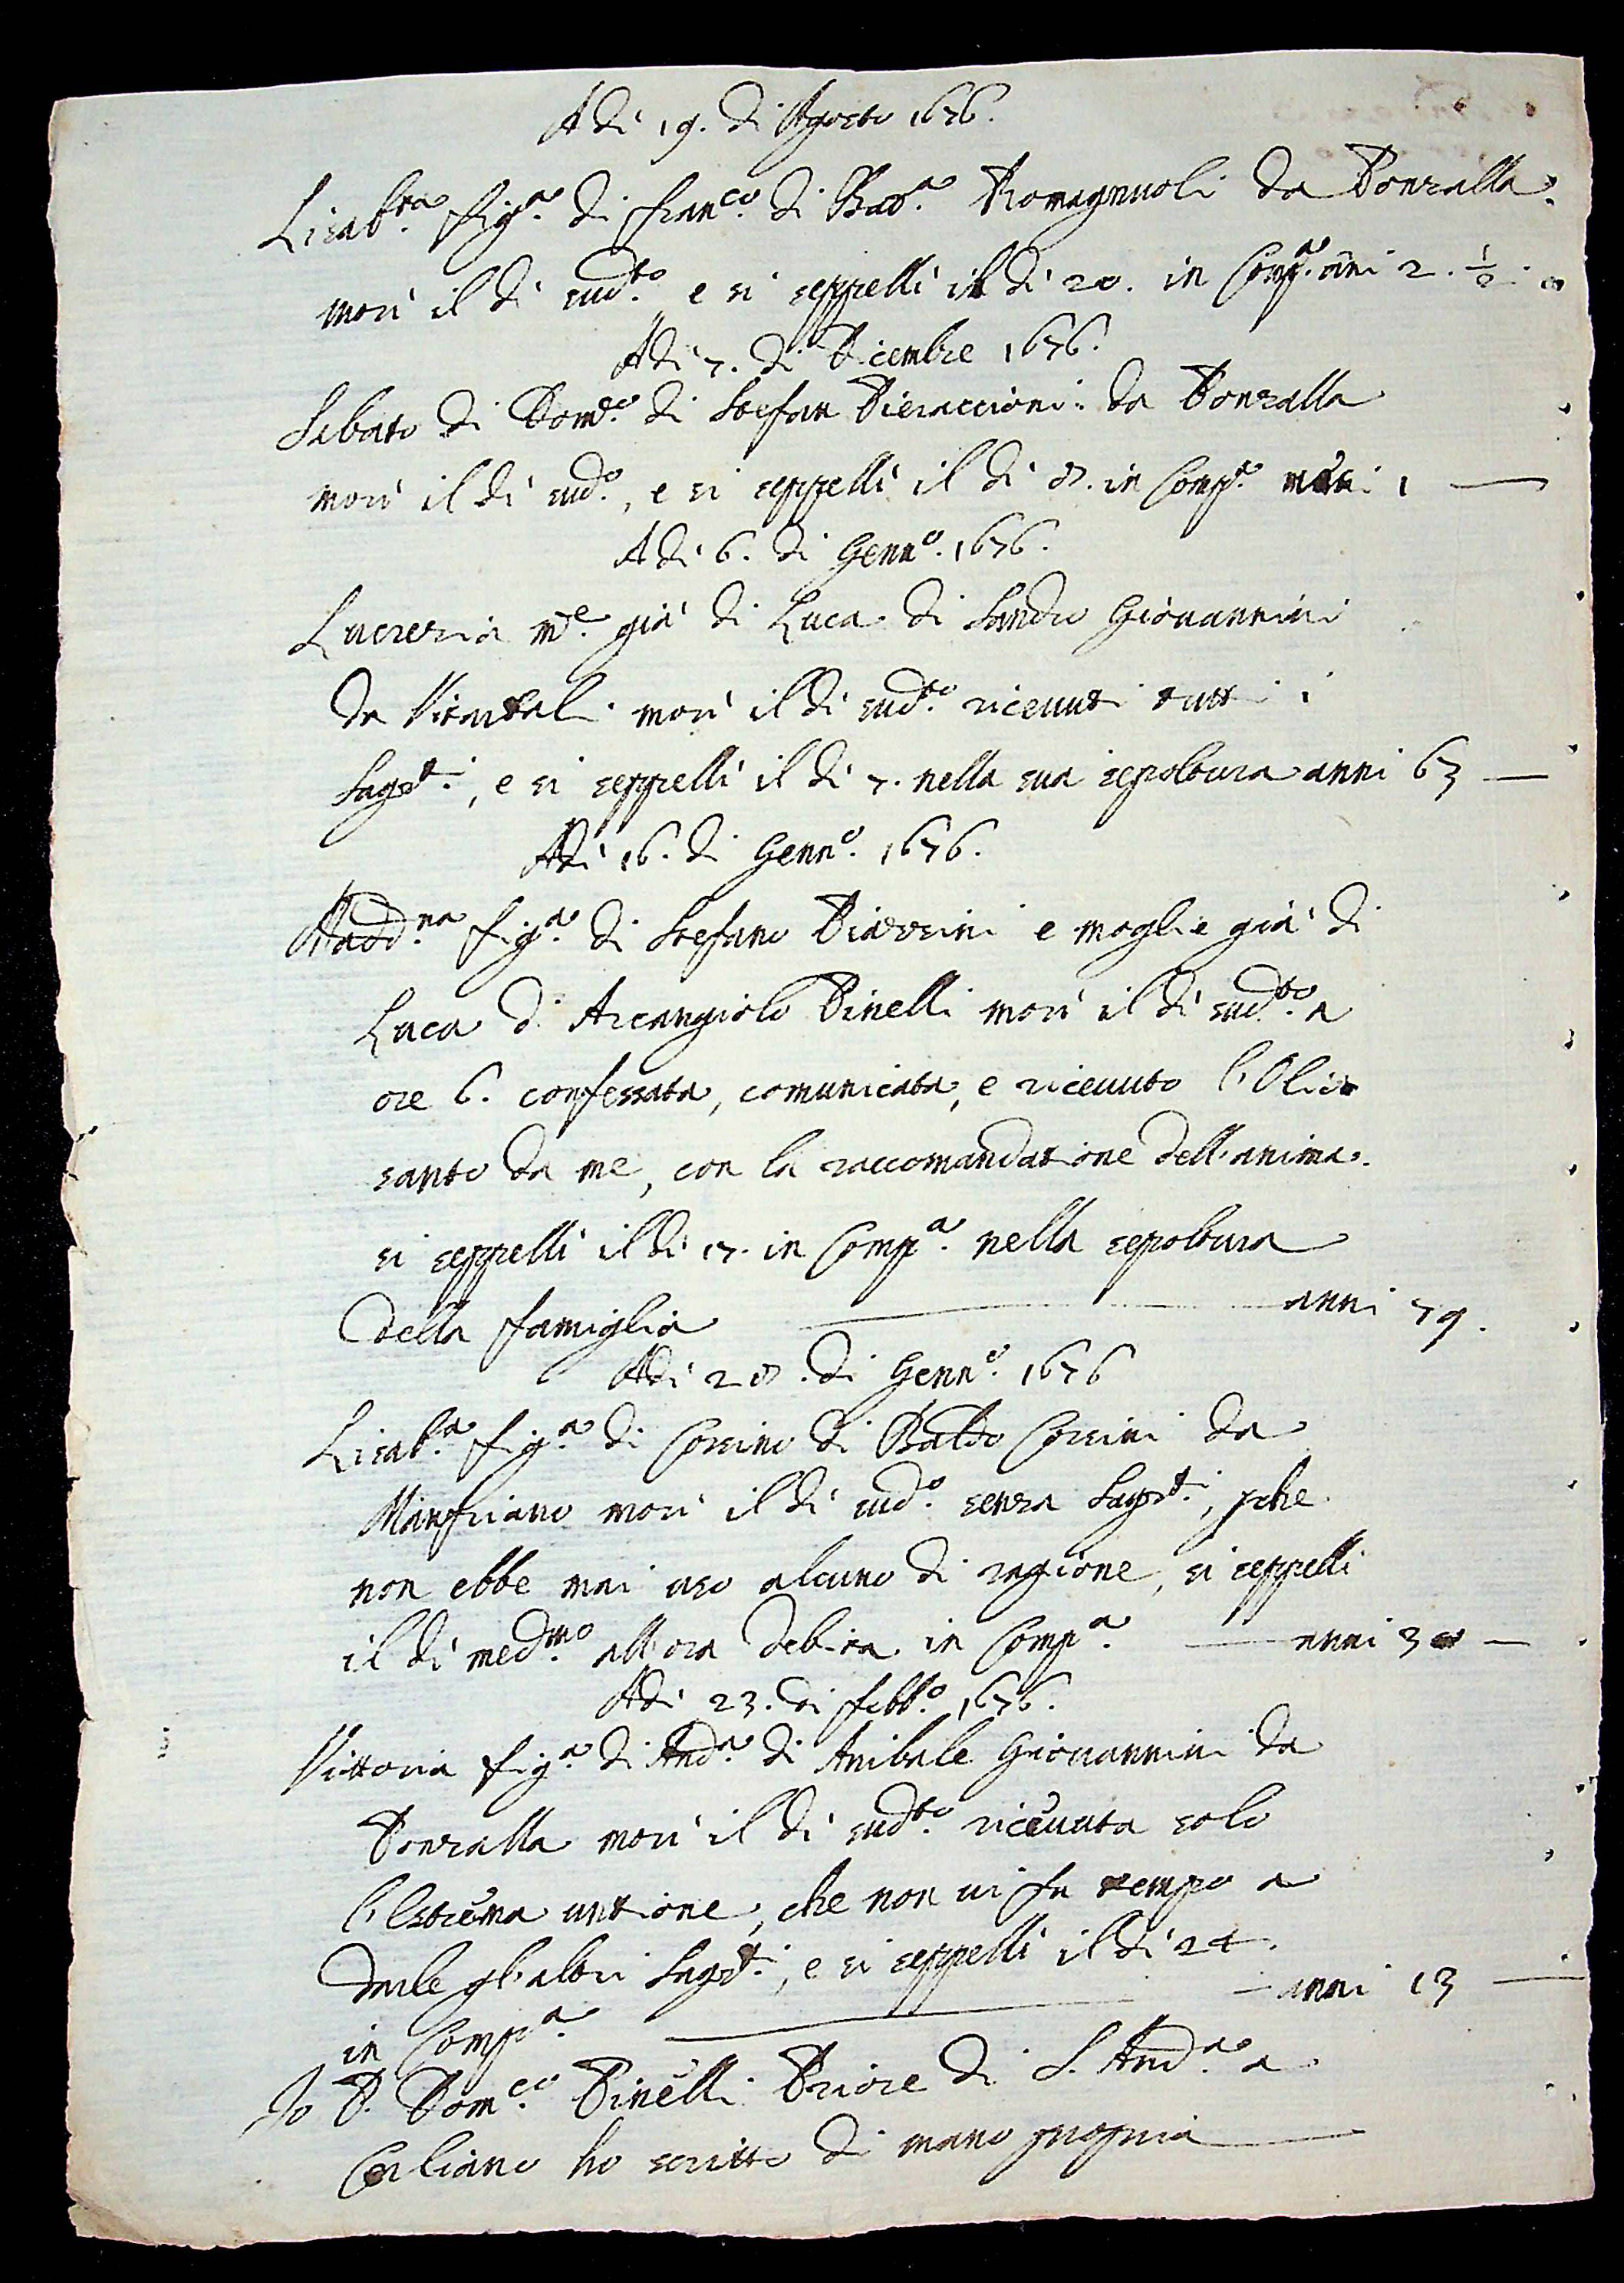 Adi 19. di Agosto 1676.
Lisab.ta fig.a di Fran.co di Bat.a Romagnuoli da Ponzalla
morì il dì sud.to e si seppellì il di 20. in Comp.a ani 2. ½.
Adi 7. di Dicembre 1676.
Sabato di Dom.co di Stefan Pieraccioni da Ponzalla
morì il dì sud.o, e si seppellì il dì 8. in Comp.a 1
Adi 6. di Genn.o 1676.
Lucrezia m.e già di Luca di Sandro Giovannini
da morì il dì sud.to ricevuti tutti i
Sagr.ti, e si seppellì il di 7. nella sua sepoltura anni 63
Adi 16. di Genn.o 1676.
Madd.na fig.a di Stefano e moglie già di
Luca di Arcangiolo Pinelli morì il dì sud.to a
ore 6. confessata, comunicata, e ricevuto l'Olio
santo da me, con la raccomandatione dell'anima.
si seppellì il di 17. in Comp.a nella sepoltura
della famiglia anni 79.
Adi 28. di Genn.o 1676
Lisab.a fig.a di Corsino di Baldo Corsini da
Manfriano morì il dì sud.o senza Sagr.ti, pche
non ebbe mai uso alcuno di ragione, si seppellì
il dì med.mo all'ora debita in Comp.a anni 30
Adi 23. di Febb.o 1676.
Vittoria fig.a di And.a di Anibale Giovannini da
Ponzalla morì il dì sud.to ricevuta solo
l'Estrema untione, che non vi fu tempo a
darle gl'altri Sagr.ti, e si seppellì il dì 24.
in Comp.a anni 13
Io P. Dom.co Pinelli Priore di S. And.a a
Cerliano ho scritto di mano propria